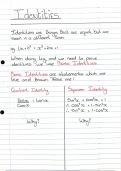 Identities
Identities are things that are equal but are
written in a different form.
eg (x+1)² = x² + 2x + 1
When doing trig, sin² we need to prove
identities. We use Basic Identities
Basic Identities are statements which are
true and known to us!
Quotient Identity
Pythagorean Identity
sinx = tanx
cosx
sin²x + cos²x = 1
sin²x = 1 - cos²x
cos²x = 1 - sin²x
Why?
Why?